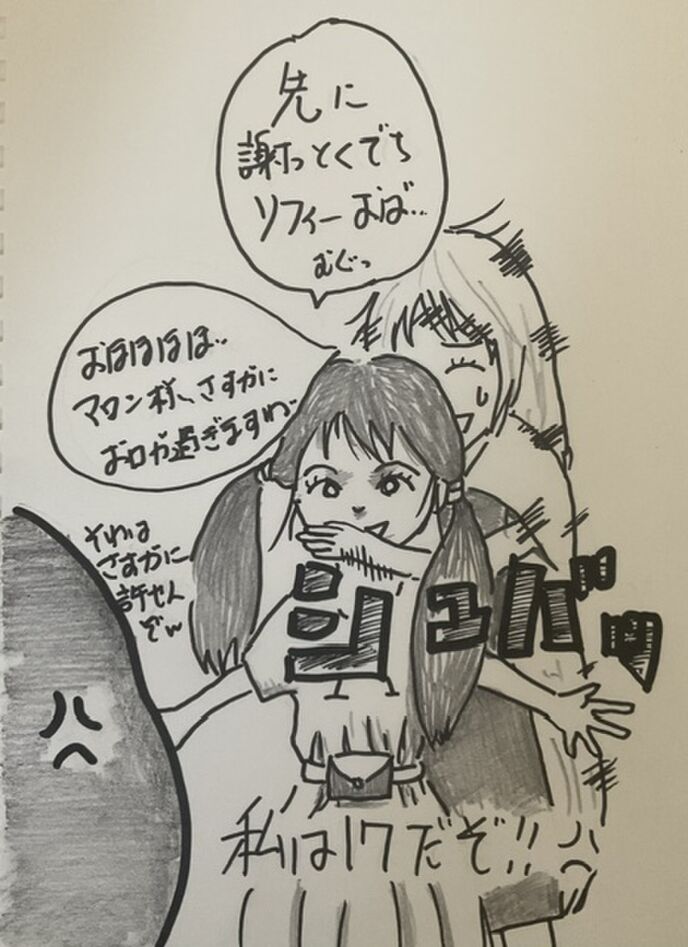 先に
謝っとくでち
ソフィーおば…
むぐっ
おほほほほ…
マロン様、さすがに
お口が過ぎますわ…
それは
さすがに
許せん
ぞw
シュバッ
私は17だぞ!!